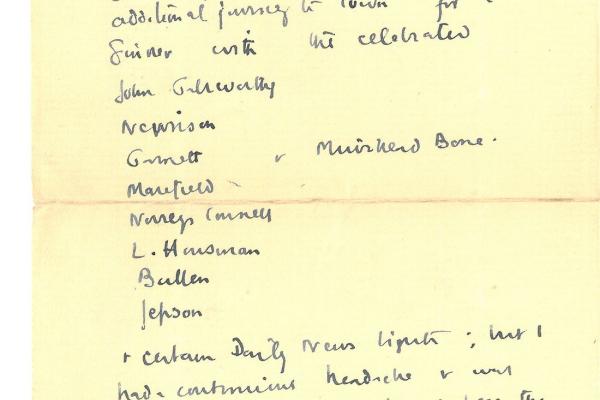 additional journey to Town for a
dinner with the celebrated
John Galsworthy
Nevinson
Garnett & Muirhead Bone.
Masefield
Norreys Connell
L. Housman
Bullen
Jepson
& certain Daily News lights; but I
had a continuous headache & was
the